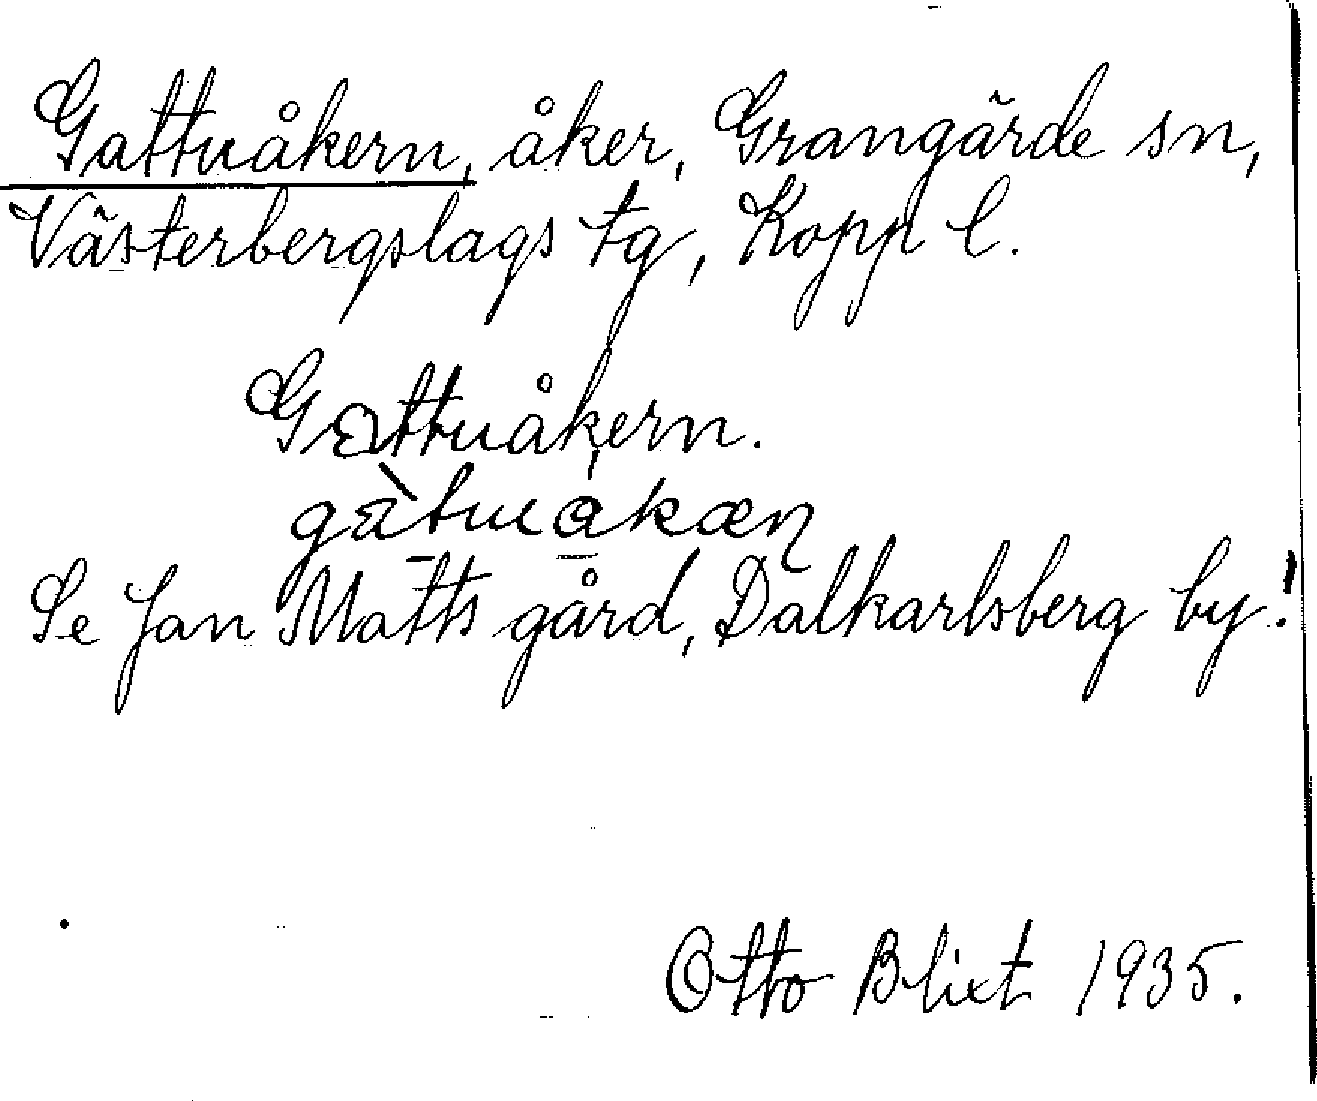 Gattuåkern, åker, Grangärde sn,
Västerbergslags tg, Kopp l.
Gattuåkern.
Se Jan Matts gård, Dalkarlsberg by!
Otto Blixt 1935.